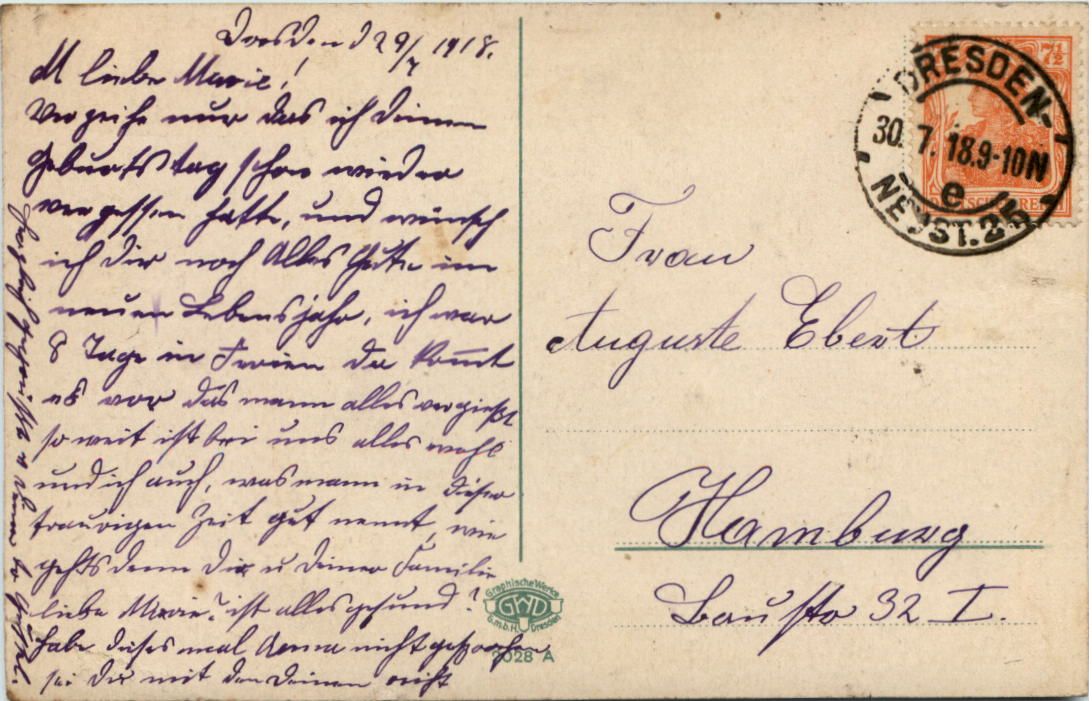 Dresden d 29/7 1918.
M liebe Marie!
Verzeihe nur das ich deinen
Geburtstag schon wieder
vergessen hatte, und wünsch
ich dir noch Alles Gute im
neuen Lebensjahr, ich war
8 Tage in Ferien da kom̅t
es vor das mann alles vergießt
so weit ist bei uns alles wohl
und ich auch, was mann in dieser
traurigen Zeit gut nennt, wie
gehts denn Dir u deiner Familie
liebe Marie? ist alles gesund?
habe dieses mal Anna nicht gesprochen
sei Du mit den Deinen recht
herzlich gegrüßt
DRESDEN-
30. 7. 18.9-10N
e
NEUST.25
7½
Frau
Auguste Ebert
Hamburg
Baustr 32 I.
Graphische Werke
GWD
G.m.b.H. Dresden
2028 A